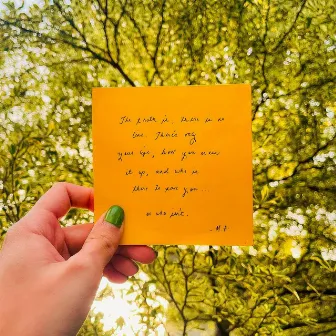 The truth is, there is no
one. There's only
your ego, how you
it up, and who is
there to save you...
or who isn't.